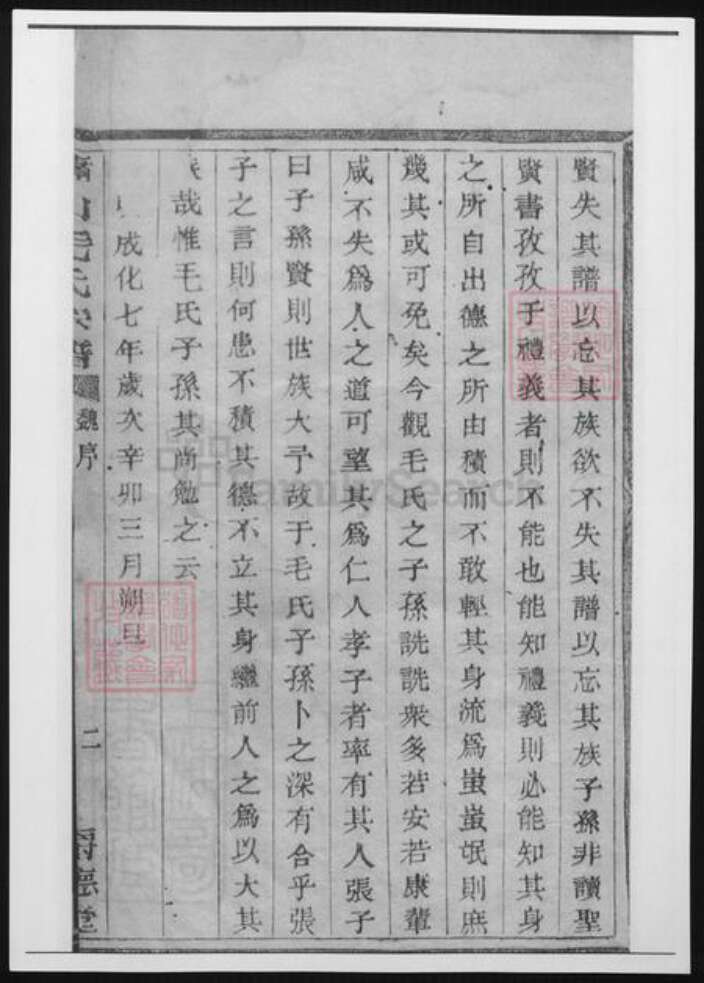 賢失其譜以忘其族欲不失其譜以忘其族子孫非讀聖
賢書孜孜于禮義者則不能也能知禮義則必能知其身
之所自出德之所由積而不敢輕其身流為蚩蚩氓則庶
幾其或可免矣今觀毛氏之子孫詵詵衆多若安若康輩
咸不失爲人之道可望其爲仁人孝子者率有其人張子
曰子孫賢則世族大予故于毛氏子孫卜之深有合乎張
子之言則何患不積其德不立其身繼前人之爲以大其
族哉惟毛氏子孫其尚勉之云
成化七年歲次辛卯三月朔旦
山毛氏宗譜
魏序
二
爵德堂
FamilySearch